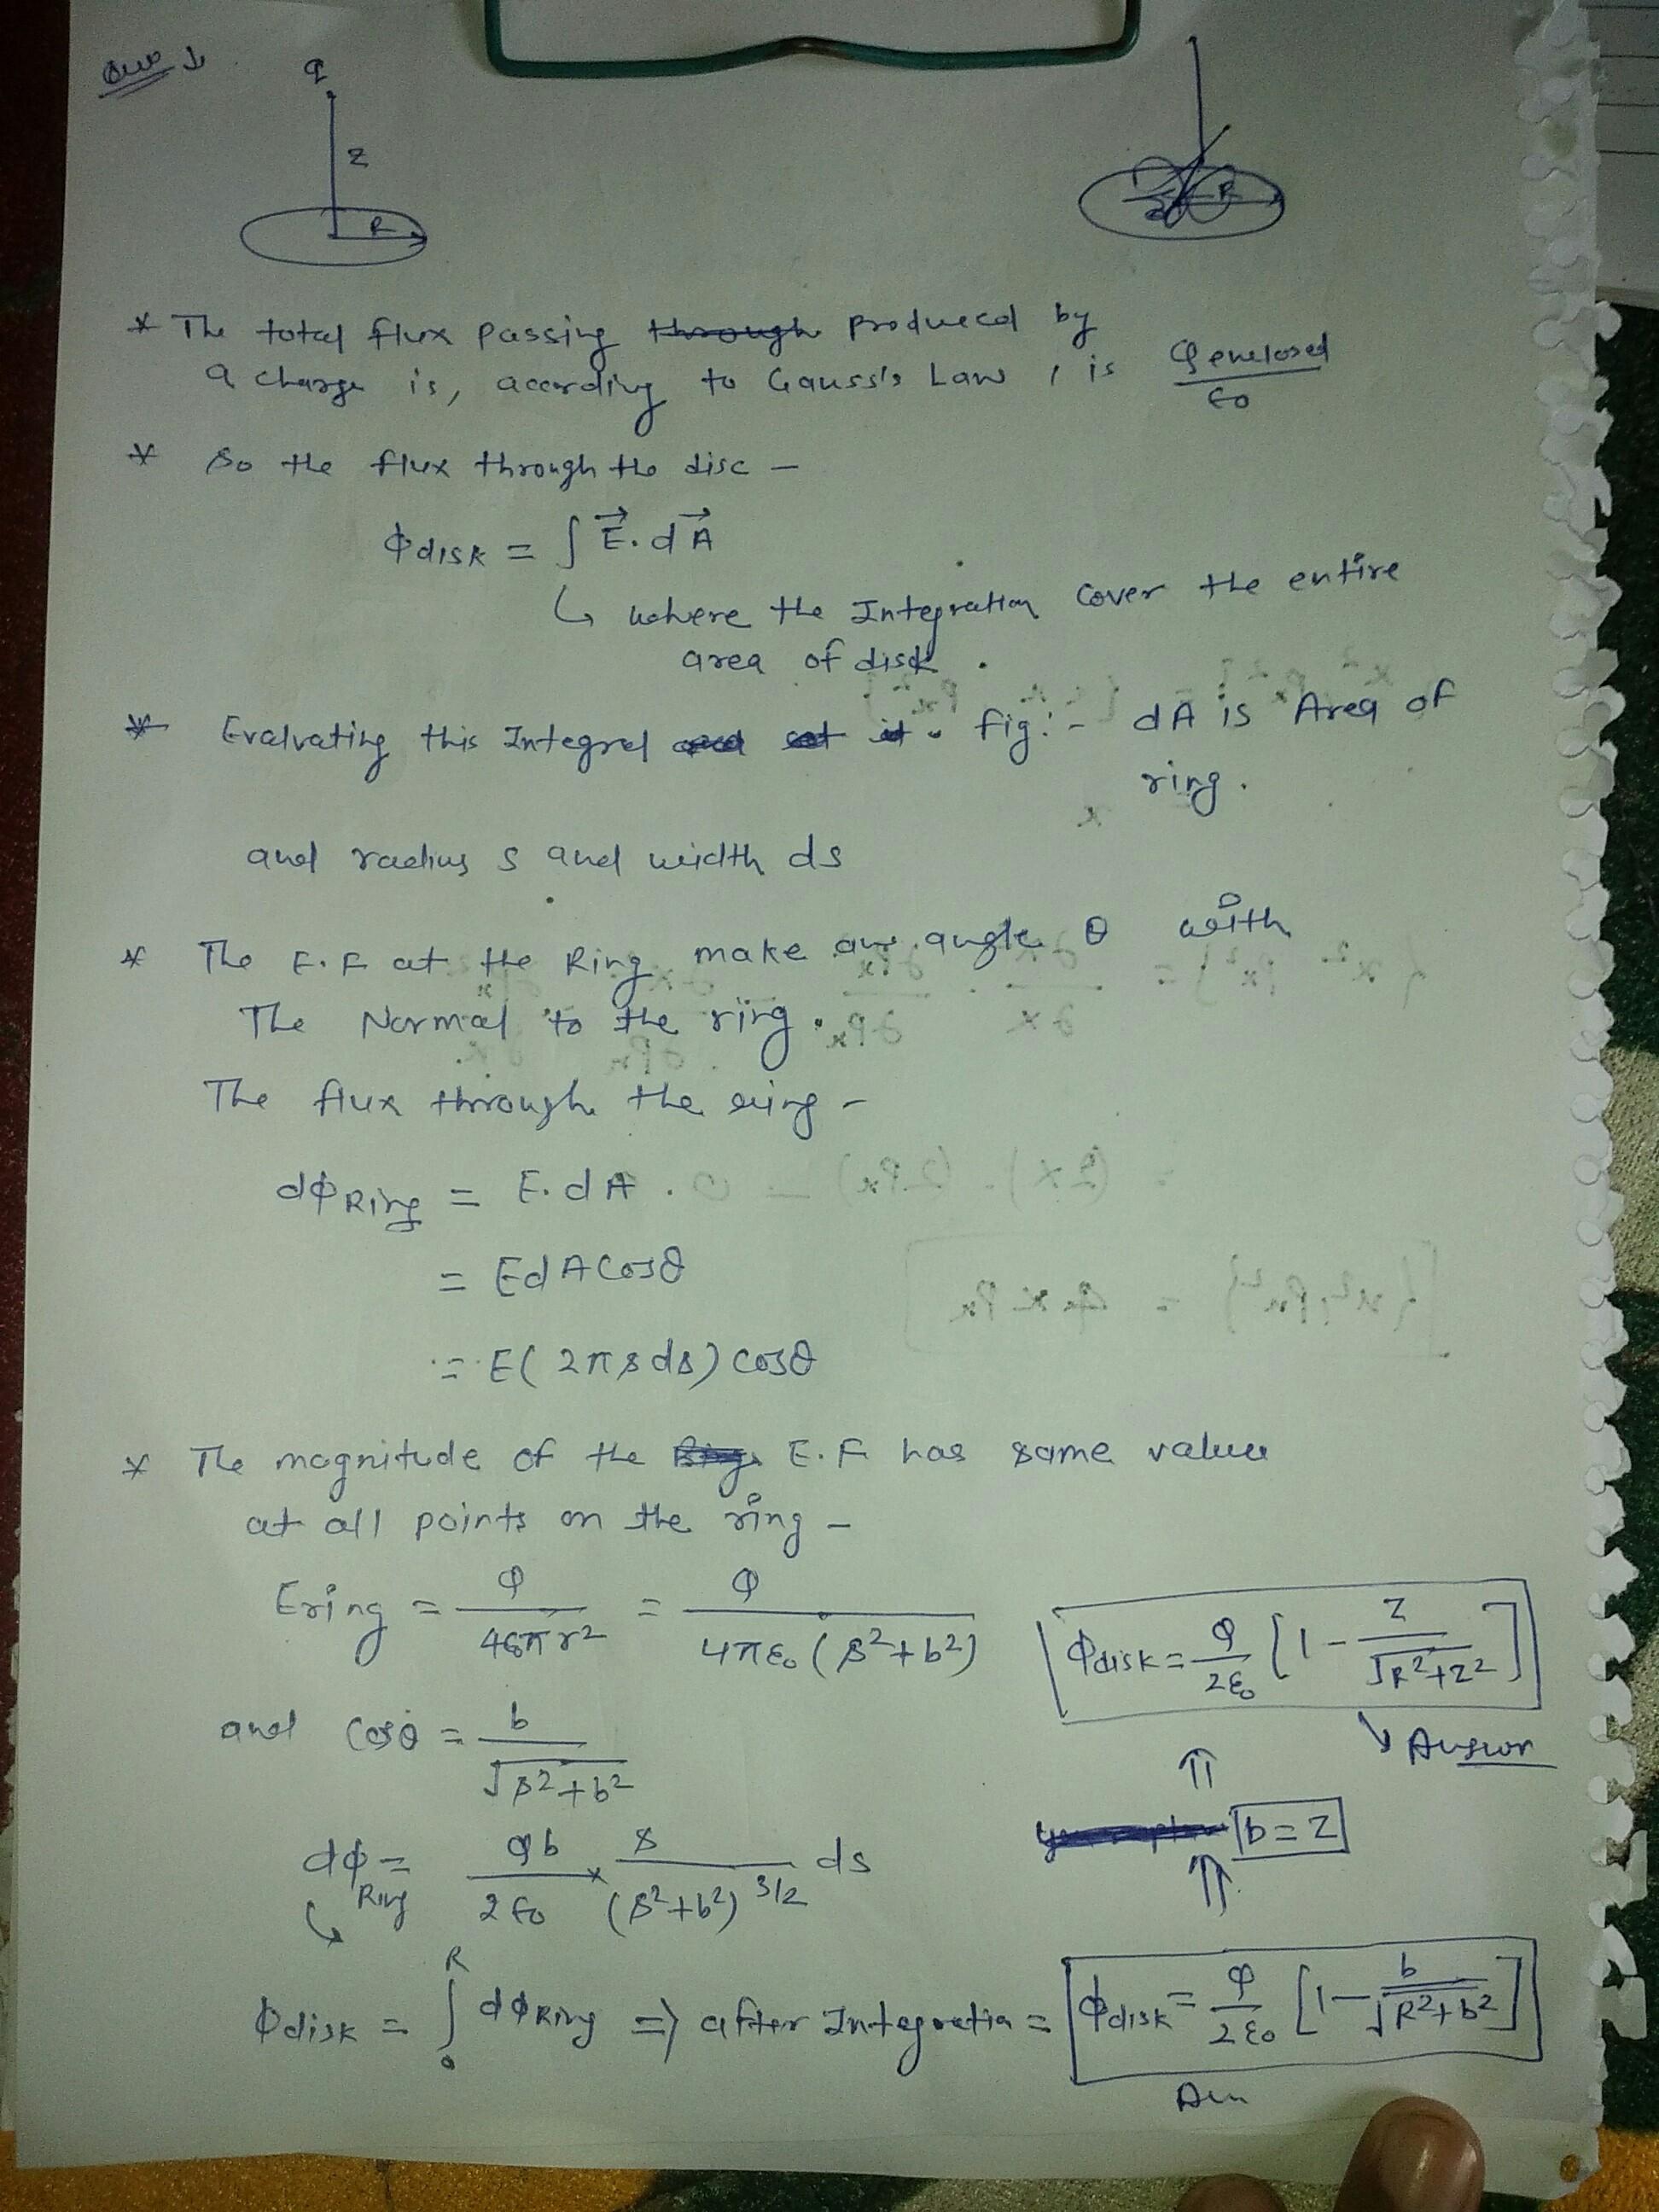 q
z
R
R
* The total flux passing through produced by
a charge is, according to Gauss's Law, is Qenclosed / ε0
* So the flux through the disc –
ϕdisk = ∫ E⃗. dA⃗
↳ where the Integration cover the entire
area of disk.
* Evaluating this Integral and set it. fig:- dA is Area of
ring.
and radius s and width ds
* The E.F at the Ring make an angle θ with
The Normal to the ring.
The flux through the ring –
dϕRing = E. dA.
= EdA Cosθ
= E( 2πsds) cosθ
* The magnitude of the Ring E.F has same value
at all points on the ring –
Ering = Q / 4επr² = Q / 4πε0 (s²+b²)
and Cosθ = b / √s²+b²
dϕRing = Qb / 2ε0 × s / (s²+b²)^3/2 ds
ϕdisk = ∫₀ᴿ dϕRing ⇒ after Integration = ϕdisk = Q / 2ε0 [1 – b / √R²+b²]
Ans
⇑
b=z
⇑
ϕdisk = Q / 2ε0 [1 – z / √R²+z²]
↘ Answer